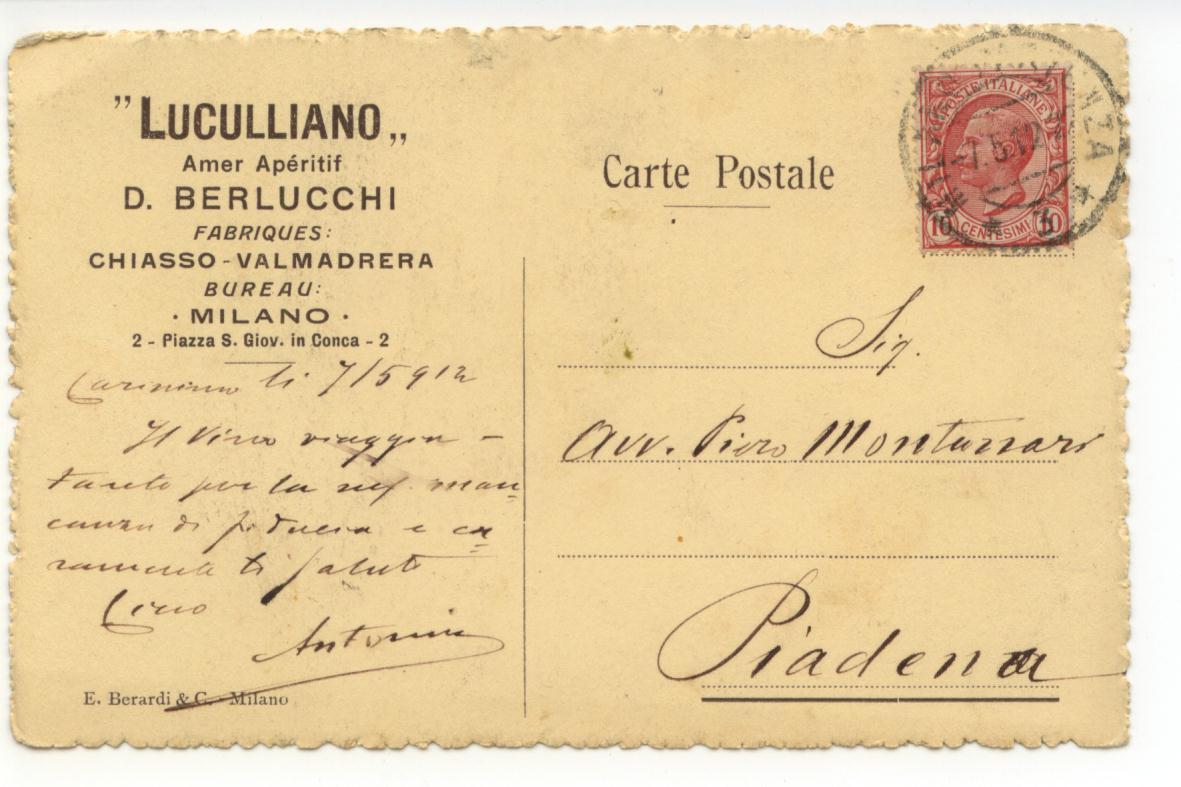 "LUCULLIANO„
Amer Apéritif
D. BERLUCCHI
FABRIQUES:
CHIASSO - VALMADRERA
BUREAU:
· MILANO ·
2 - Piazza S. Giov. in Conca - 2
li 7/5 912
Il vino viaggia -
per la man=
canza di fiducia e ca=
ramente ti saluto
Antonini
E. Berardi & C. - Milano
Carte Postale
POSTE ITALIANE
10 CENTESIMI 10
Sig.
Avv. Piero Montanari
Piadena